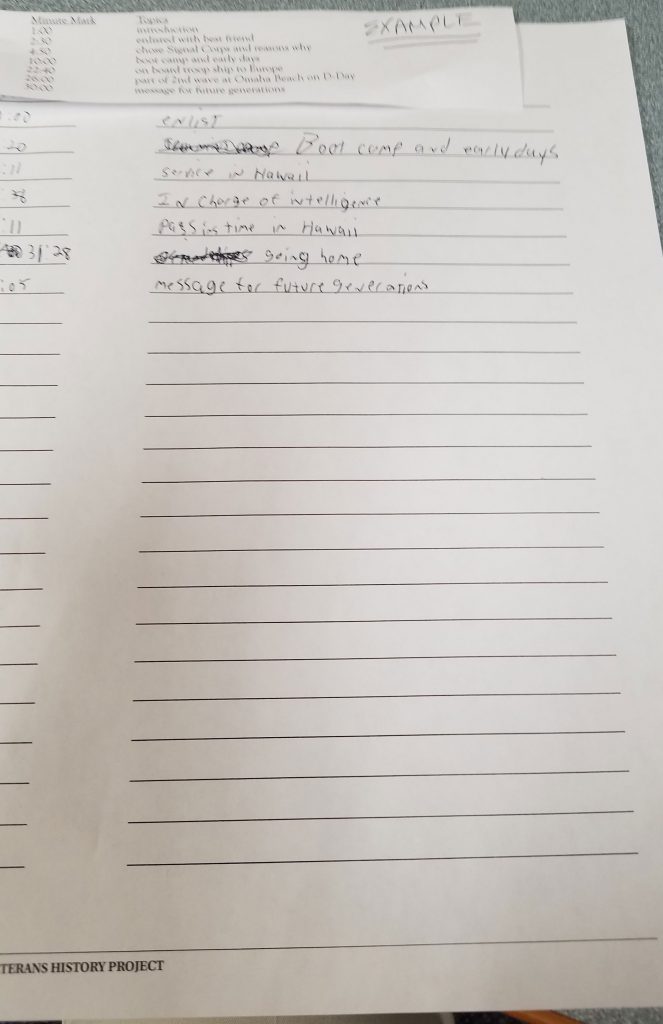 Minute Mark Topics EXAMPLE
1:00 introduction
2:30 enlisted with best friend
4:50 chose Signal Corps and reasons why
10:00 boot camp and early days
22:40 on board troop ship to Europe
26:00 part of 2nd wave at Omaha Beach on D-Day
30:00 message for future generations
:00 enlist
:20 Boot camp and early days
:11 service in Hawaii
In charge of intelligence
:11 Passing time in Hawaii
31:28 going home
:05 message for future generations
TERANS HISTORY PROJECT